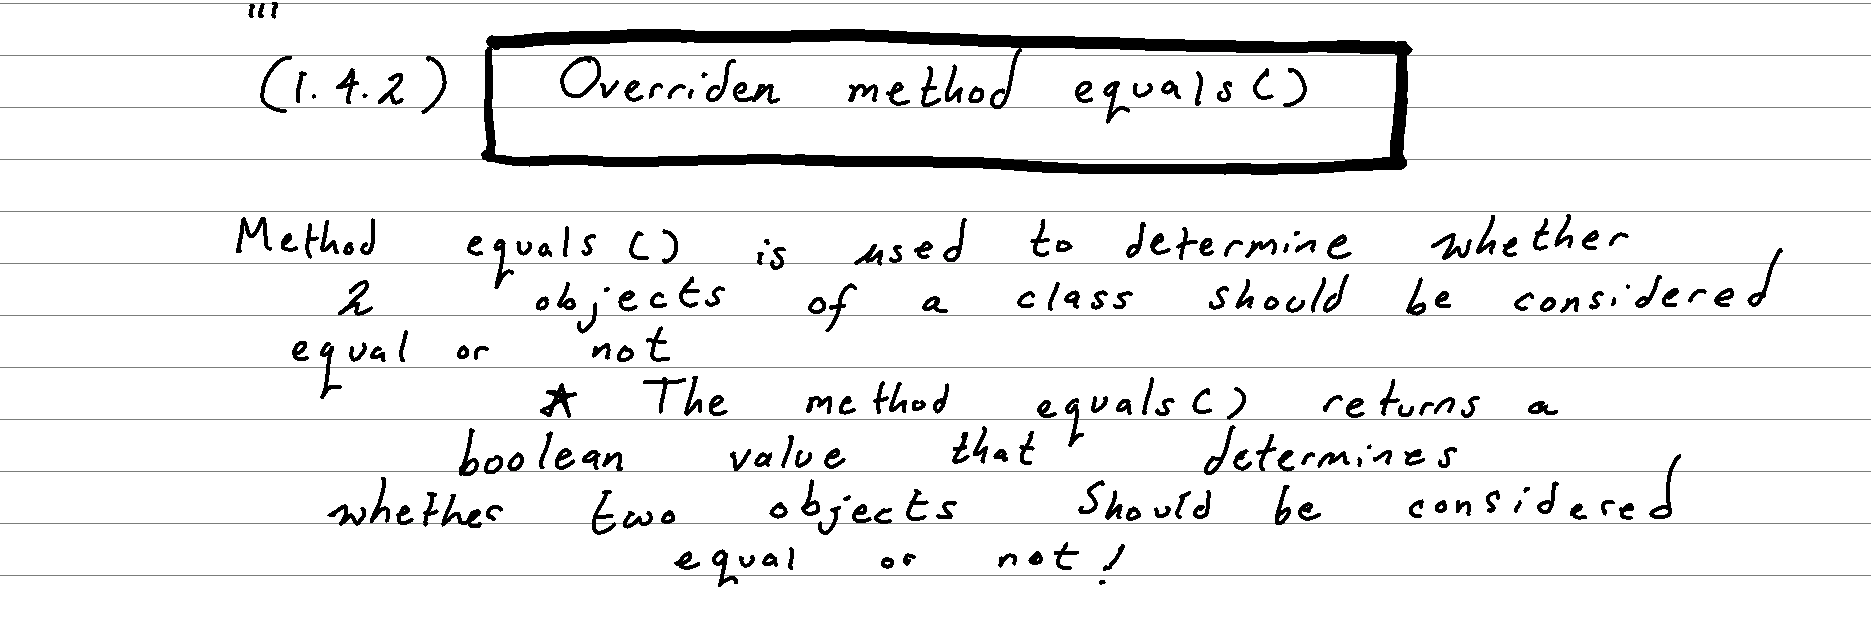 (1.4.2) Overriden method equals()
Method equals() is used to determine whether
2 objects of a class should be considered
equal or not
* The method equals() returns a
boolean value that determines
whether two objects should be considered
equal or not!